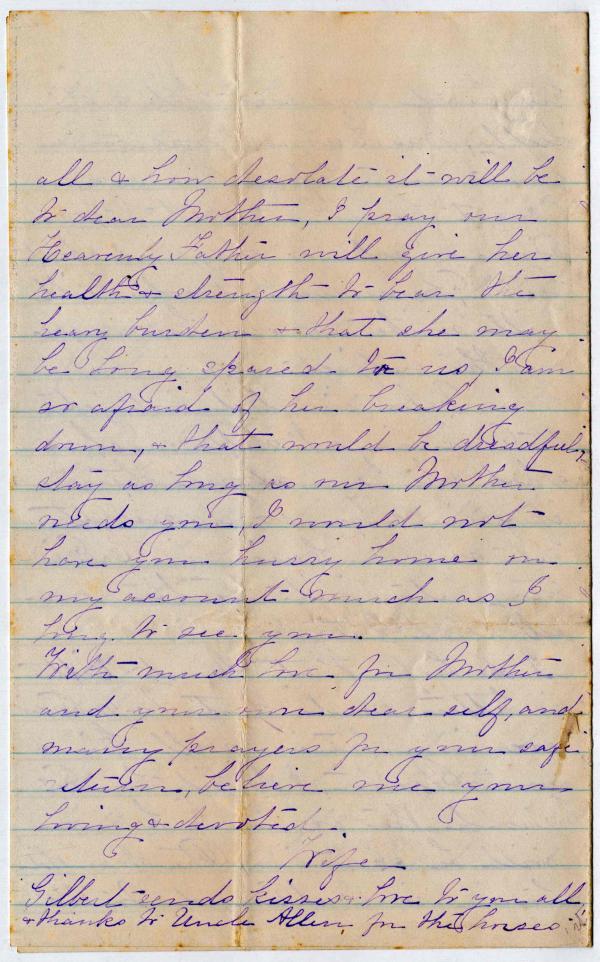 all & how desolate it will be
to dear Mother, I pray our
Heavenly Father will give her
health & strength to bear the
heavy burden & that she may
be long spared to us, I am
so afraid of her breaking
down, & that would be dreadful,
stay as long as our Mother
needs you, I would not
have you hurry home on
my account much as I
long to see you.
With much love for Mother
and your own dear self, and
many prayers for your safe
return, believe me your
loving & devoted
Wife
Gilbert sends kisses & love to you all
& thanks to Uncle Allen, for the horses